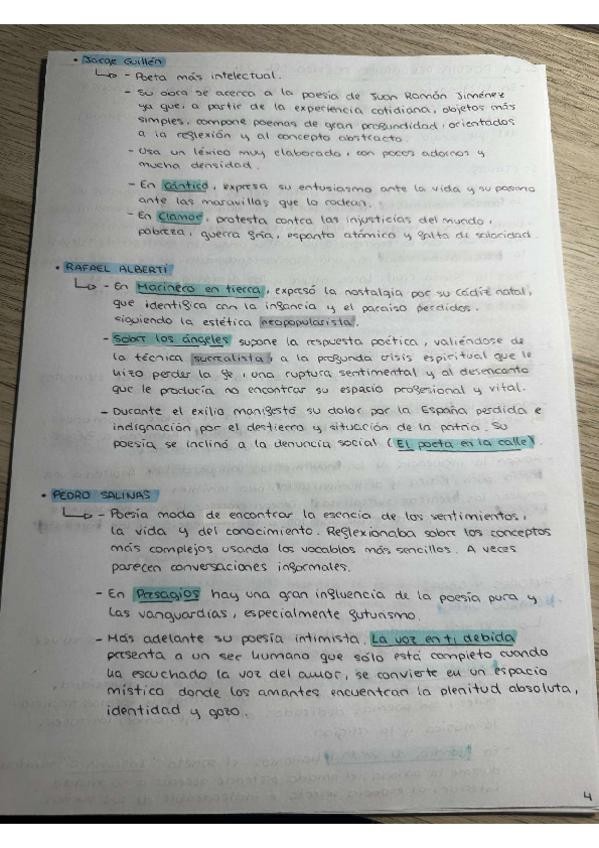 • Jorge Guillén
↳ - Poeta más intelectual.
- Su obra se acerca a la poesía de Juan Ramón Jiménez
ya que, a partir de la experiencia cotidiana, objetos más
simples, compone poemas de gran profundidad, orientados
a la reflexión y al concepto abstracto.
- Usa un léxico muy elaborado, con pocos adornos y
mucha densidad.
- En Cántico, expresa su entusiasmo ante la vida y su pasmo
ante las maravillas que lo rodean.
- En Clamor, protesta contra las injusticias del mundo,
pobreza, guerra fría, espanto atómico y falta de
• RAFAEL ALBERTI
↳ - En Marinero en tierra, expresó la nostalgia por su Cádiz natal,
que identifica con la infancia y el paraíso perdidos.
siguiendo la estética neopopularista.
- Sobre los ángeles supone la respuesta poética, valiéndose de
la técnica surrealista, a la profunda crisis espiritual que le
hizo perder la fe, una ruptura sentimental y al desencanto
que le producía no encontrar su espacio profesional y vital.
- Durante el exilio manifestó su dolor por la España perdida e
indignación por el destierro y situación de la patria. Su
poesía se inclinó a la denuncia social (El poeta en la calle)
• PEDRO SALINAS
↳ - Poesía modo de encontrar la esencia de los sentimientos,
la vida y del conocimiento. Reflexionaba sobre los conceptos
más complejos usando los vocablos más sencillos. A veces
parecen conversaciones informales.
- En Presagios hay una gran influencia de la poesía pura y
las vanguardias, especialmente futurismo.
- Más adelante su poesía intimista. La voz en ti debida
presenta a un ser humano que sólo está completo cuando
ha escuchado la voz del amor, se convierte en un espacio
místico donde los amantes encuentran la plenitud absoluta,
identidad y gozo.
4